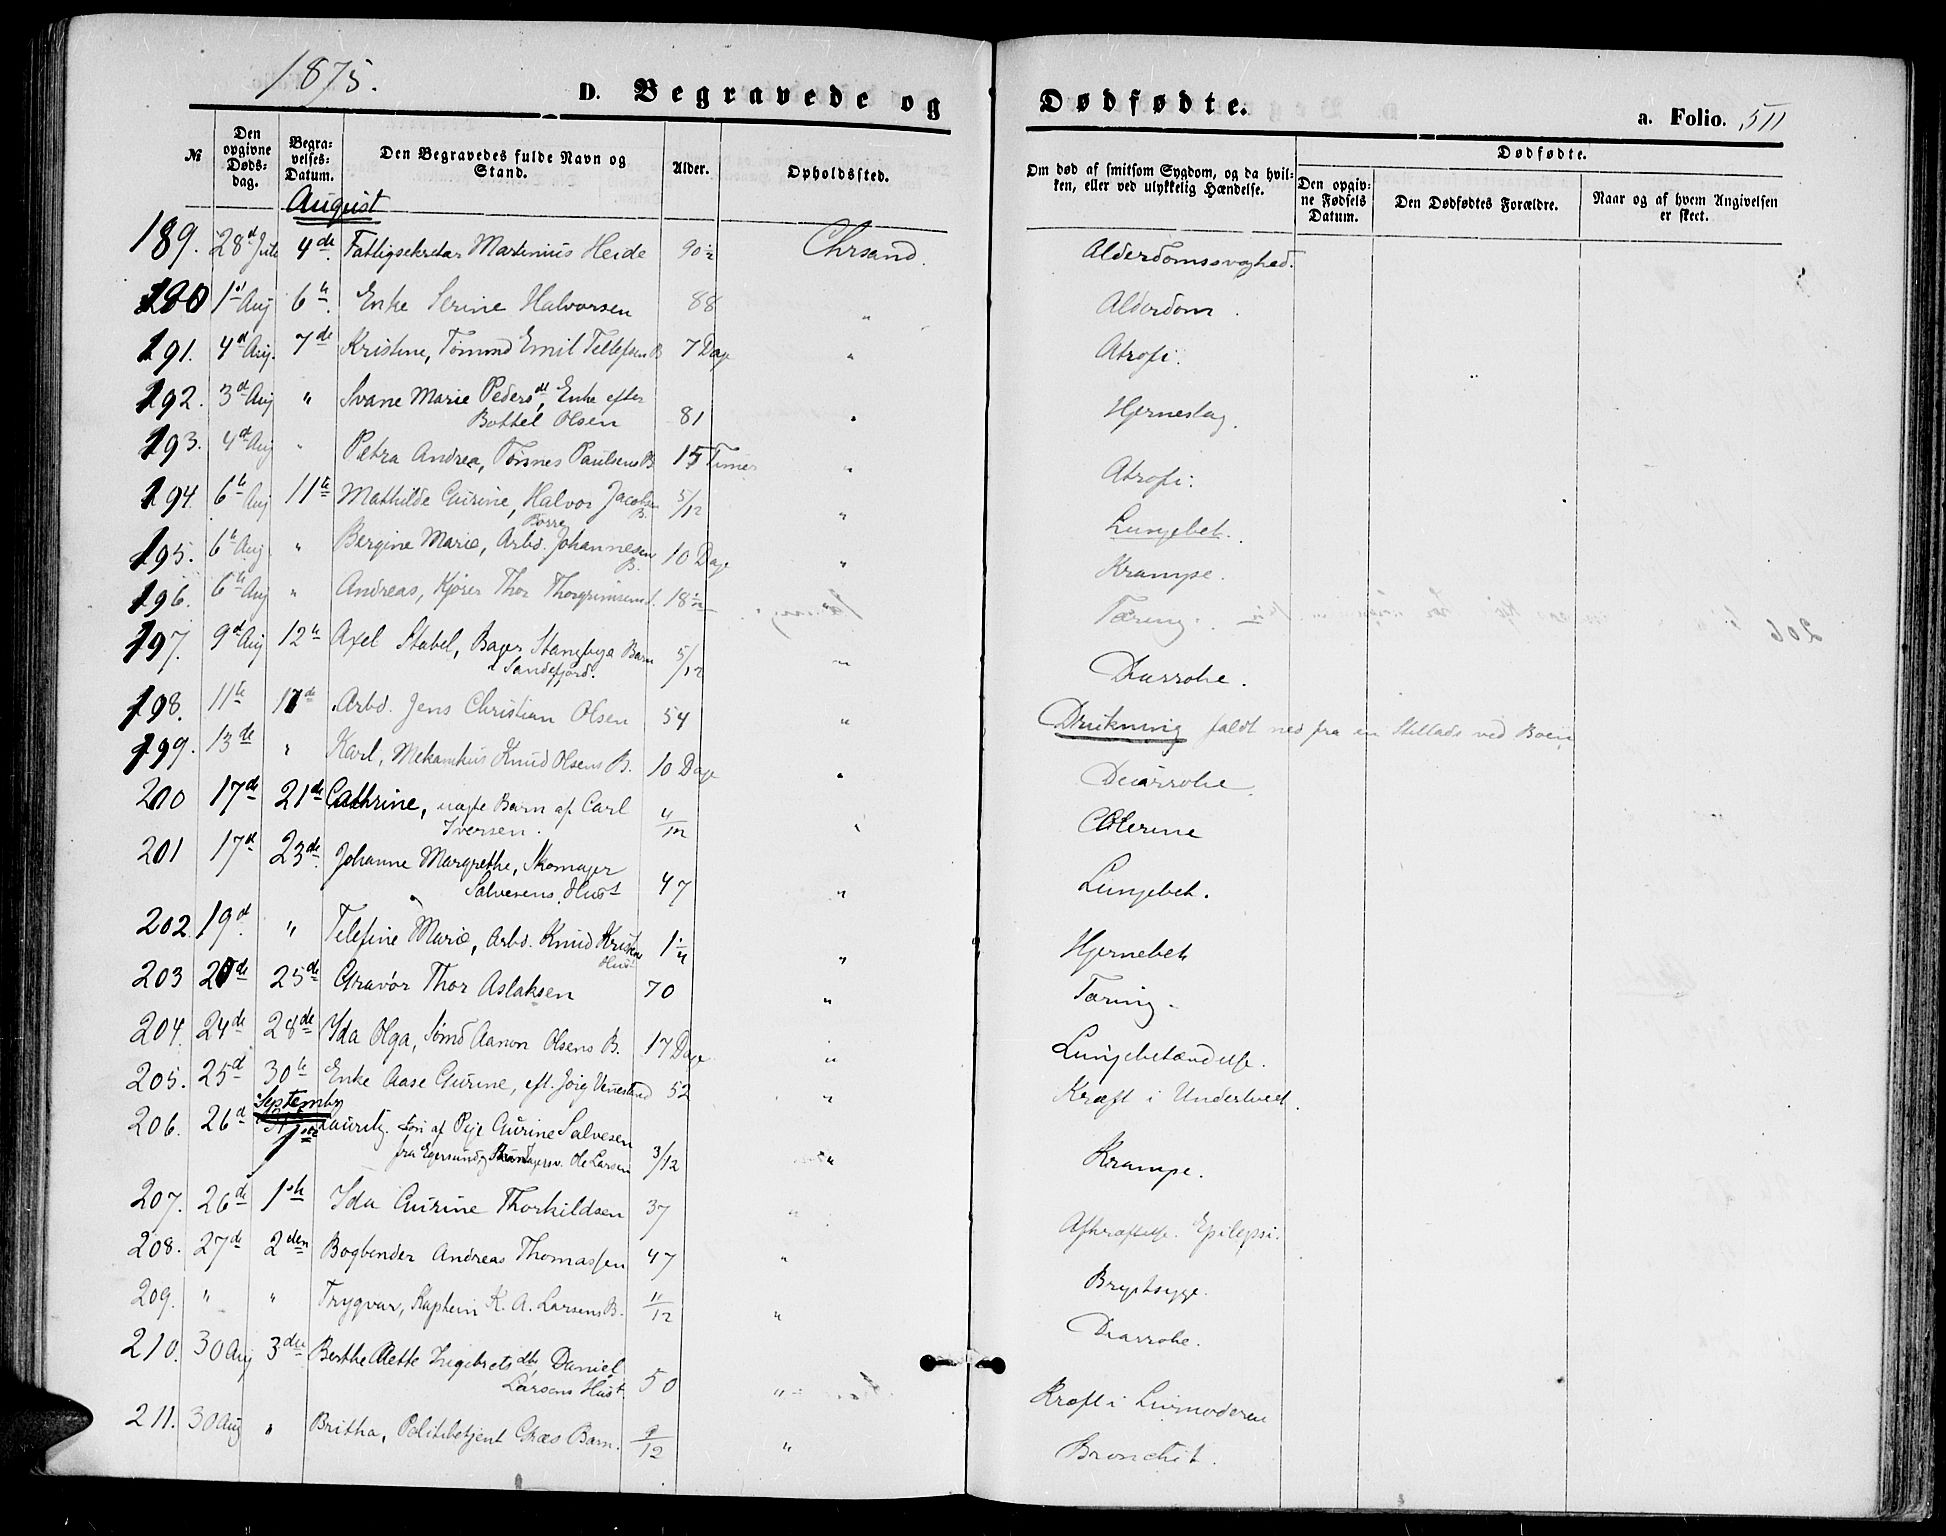 1875.
D. Begravede og Dødfødte.
a. Folio. 511
№ | Den opgivne Døds-dag. | Begra-velses-Datum. | Den Begravedes fulde Navn og Stand. | Alder. | Opholdssted. | Om død af smitsom Sygdom, og da hvil-ken, eller ved ulykkelig Hændelse. | Dødfødte. | Den opgiv-ne Fødsels Datum. | Den Dødfødtes Forældre. | Naar og af hvem Angivelsen er skeet.
August
189. 28d Juli 4de Fattigsekretær Martinius Heide 90 1/2 Chrsand. Alderdomssvaghed.
190 1st Aug 6te Enke Serine Halvorsen 88 " Alderdom.
191. 4d Aug. 7de Kristine, Tømmd Emil Tellefsen B 7 Dage " Atrofi.
192. 3d Aug " Svane Marie Pedersdt, Enke efter
Bottel Olsen 81 " Hjerneslag.
193. 4d Aug " Petra Andrea, Paulsens B 15 Timer " Atrofi.
194. 6te Aug 11te Mathilde Gurine, Halvor Jacobsen B. 5/12 " Lungebet.
195. 6te Aug " Bergine Marie, Arbd. Johannesen B. 10 Dage " Krampe.
196. 6te Aug " Andreas, Kjører Thor Thorgrimsens 18 1/2 Tæring.
197. 9d Aug 12te Axel Stabel, Bager Stangbya Barn
Sandefjord. 5/12 " Diarrohe.
198. 11te 17de Arbd. Jens Christian Olsen 54 " Drukning faldt ned fra en Stillads ved Boen
199. 13de " Karl, Mekanikus Knud Olsens B. 10 Dage " Deiarrohe
200 17de 21de Cathrine, uægte Barn af Carl
Iversen. 4/12 " Colerine
201 17d 23de Johanne Margrethe, Skomager
Salvesens Hust 47 " Lungebet.
202. 19d. " Telefine Marie, Arbd. Knud Kristen
Hust 1 1/4 " Hjernebet
203 20de 25de Gravør Thor Aslaksen 70 " Tæring.
204. 24de 28de Ida Olga, Sømd Aanon Olsens B. 17 Dage " Lungebetændelse.
205. 25d 30te Enke Aase Gurine, eft. Vennesland 52 " Kræft i Underlivet.
September
206. 26d Lauritz. Søn af Gurine Salvesen
fra Egersund Ole Larsen 3/12 " Krampe.
207. 26de 1ste Ida Gurine Thorkildsen 37 " Afkræftelse. Epilepsi.
208. 27de 2den Bogbinder Andreas Thomassen 47 " Brystsyge.
209. " " Trygvar, Kaptein K. A. Larsens B. 11/12 " Diarrohe.
210. 30 Aug 3die Berthe Mette Ingebretsdtr, Daniel
Larsens Hust. 50 " Kræft i Livmoderen
211. 30 Aug " Britha, Politibetjent Barn. 9/12 " Bronchit.